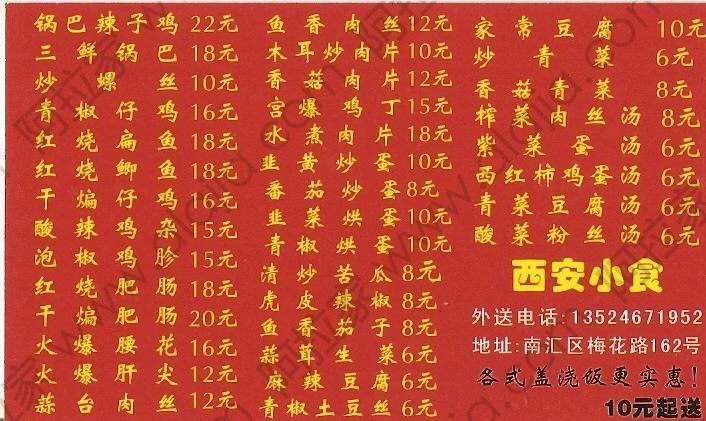 锅巴辣子鸡 22元
三鲜锅巴 18元
炒螺丝 10元
青椒仔鸡 16元
红烧扁鱼 18元
红烧鲫鱼 18元
干煸仔鸡 16元
酸辣鸡杂 15元
泡椒鸡胗 15元
红烧肥肠 18元
干煸肥肠 20元
火爆腰花 16元
火爆肝尖 12元
蒜台肉丝 12元
鱼香肉丝 12元
木耳炒肉片 10元
香菇肉片 12元
宫爆鸡丁 15元
水煮肉片 18元
韭黄炒蛋 10元
番茄炒蛋 8元
韭菜烘蛋 10元
青椒烘蛋 10元
清炒苦瓜 8元
虎皮辣椒 8元
鱼香茄子 8元
蒜茸生菜 6元
麻辣豆腐 6元
青椒土豆丝 6元
家常豆腐 10元
炒青菜 6元
香菇青菜 8元
榨菜肉丝汤 8元
紫菜蛋汤 6元
西红柿鸡蛋汤 6元
青菜豆腐汤 6元
酸菜粉丝汤 6元
西安小食
外送电话:13524671952
地址:南汇区梅花路162号
各式盖浇饭更实惠!
10元起送
阿拉家 www.alajia.com